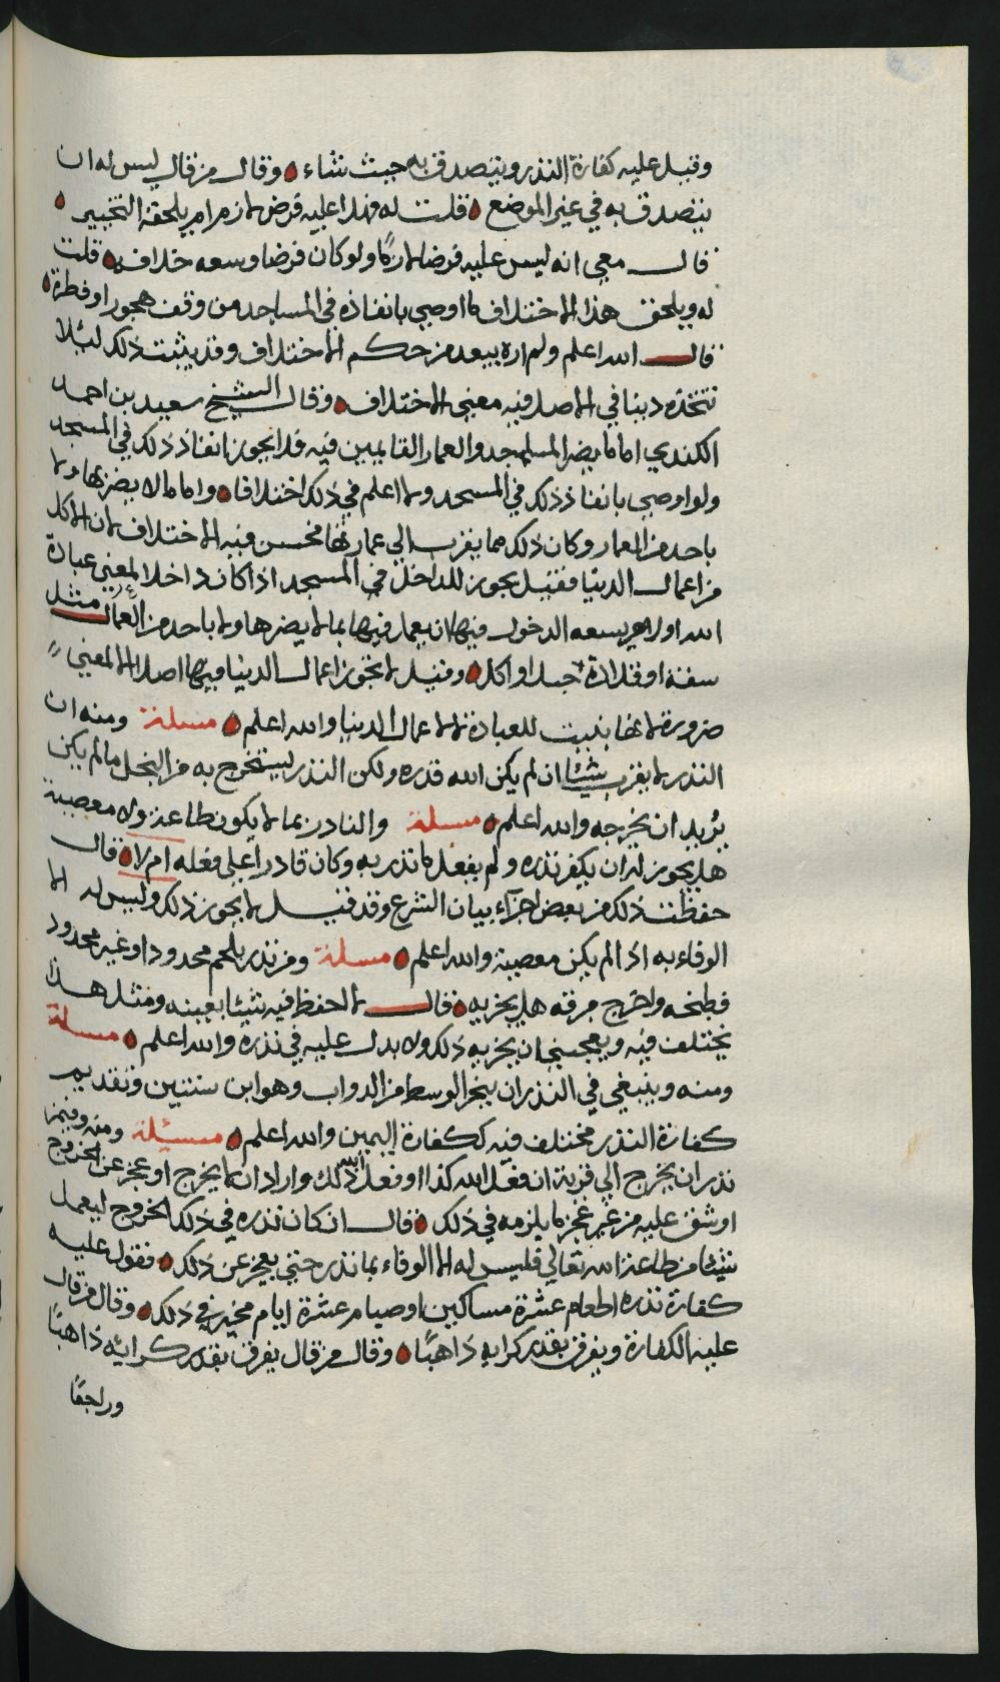 وقيل عليه كفارة النذر ويتصدق به حيث شاء وقال من قال ليس له ان
يتصدق به في غير الموضع قلت له فهذا عليه فرض لازم ام يلحقه التخيير
قال معي انه ليس عليه فرضا لازما ولو كان فرضا وسعه خلافه قلت
له ويلحق هذا الاختلاف ما اوصي بانفاذه في المساجد من وقف هجور او فطرة
قال الله اعلم ولم اره يبعد من حكم الاختلاف وقد يثبت ذلك لئلا
نتخذه دينا في الاصل فيه معنى الاختلاف وقال الشيخ سعيد بن احمد
الكندي اما ما يضر المسلمجد والعمار القايمين فيه فلا يجوز انفاذ ذلك في المسجد
ولو اوصي بانفاذ ذلك في المسجد ولا اعلم في ذلك اختلافا واما ما لا يضر بها ولا
باحد من العمار وكان ذلك مما يقرب الي عمارتها فحسن فيه الاختلاف لان الاكل
من اعمال الدنيا فقيل يجوز للداخل في المسجد اذا كان داخلا لمعنى عبادة
الله او لامر يسعه الدخول فيها ان يعمل فيها بما لا يضرها ولا باحد من العمار مثل
سفة او قلادة حبل او اكل وقيل لا تجوز اعمال الدنيا فيها اصلا الا لمعني
ضرورة لانها بنيت للعبادة لا لاعمال الدنيا والله اعلم مسلة ومنه ان
النذر لا يقرب شيئا ان لم يكن الله قدره ولكن النذر ليستخرج به من البخيل ما لم يكن
يريد ان يخرجه والله اعلم مسلة والنادر بما لا يكون طاعة ولا معصية
هل يجوز له ان يكفر نذره ولم يفعل ما نذر به وكان قادرا على فعله ام لا قال
حفظت ذلك من بعض اجزاء بيان الشرع وقد قيل لا يجوز ذلك وليس له الا
الوفاء به اذا لم يكن معصية والله اعلم مسلة ومن نذر بلحم محدود او غير محدود
فطبخه واخرج مرقه هل يجزيه قال لا احفظ فيه شيئا بعينه ومثل هذا
يختلف فيه ويعجبني ان يجزيه ذلك ولا بدل عليه في نذره والله اعلم مسلة
ومنه وينبغي في النذر ان ينحر الوسط من الدواب وهو ابن سنتين وتقديم
كفارة النذر مختلف فيه ككفارة اليمين والله اعلم مسئلة ومنه وفيمن
نذر ان يخرج الي قرية ان فعل الله كذا او فعل الله ذلك واراد ان لا يخرج او عجز عن الخروج
او شق عليه من غير عجز ما يلزمه في ذلك قال ان كان نذره في ذلك الخروج ليعمل
شيئا من طاعة الله تعالي فليس له الا الوفاء بما نذر حتي يعجز عن ذلك فقول عليه
كفارة نذره اطعام عشرة مساكين او صيام عشرة ايام مخير في ذلك وقال من قال
عليه الكفارة ويفرق بقدر كرايه ذاهبًا وقال من قال يفرق بقدر كرائه ذاهبًا
وراجعًا